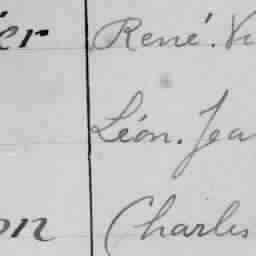 er René. Vi
Léon. Jea
on Charles